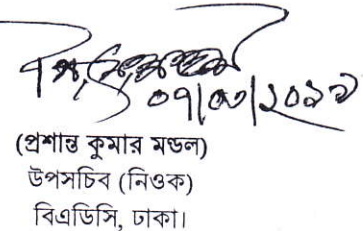 ০৭/০৩/২০১৯
(প্রশান্ত কুমার মন্ডল)
উপসচিব (নিওক)
বিএডিসি, ঢাকা।